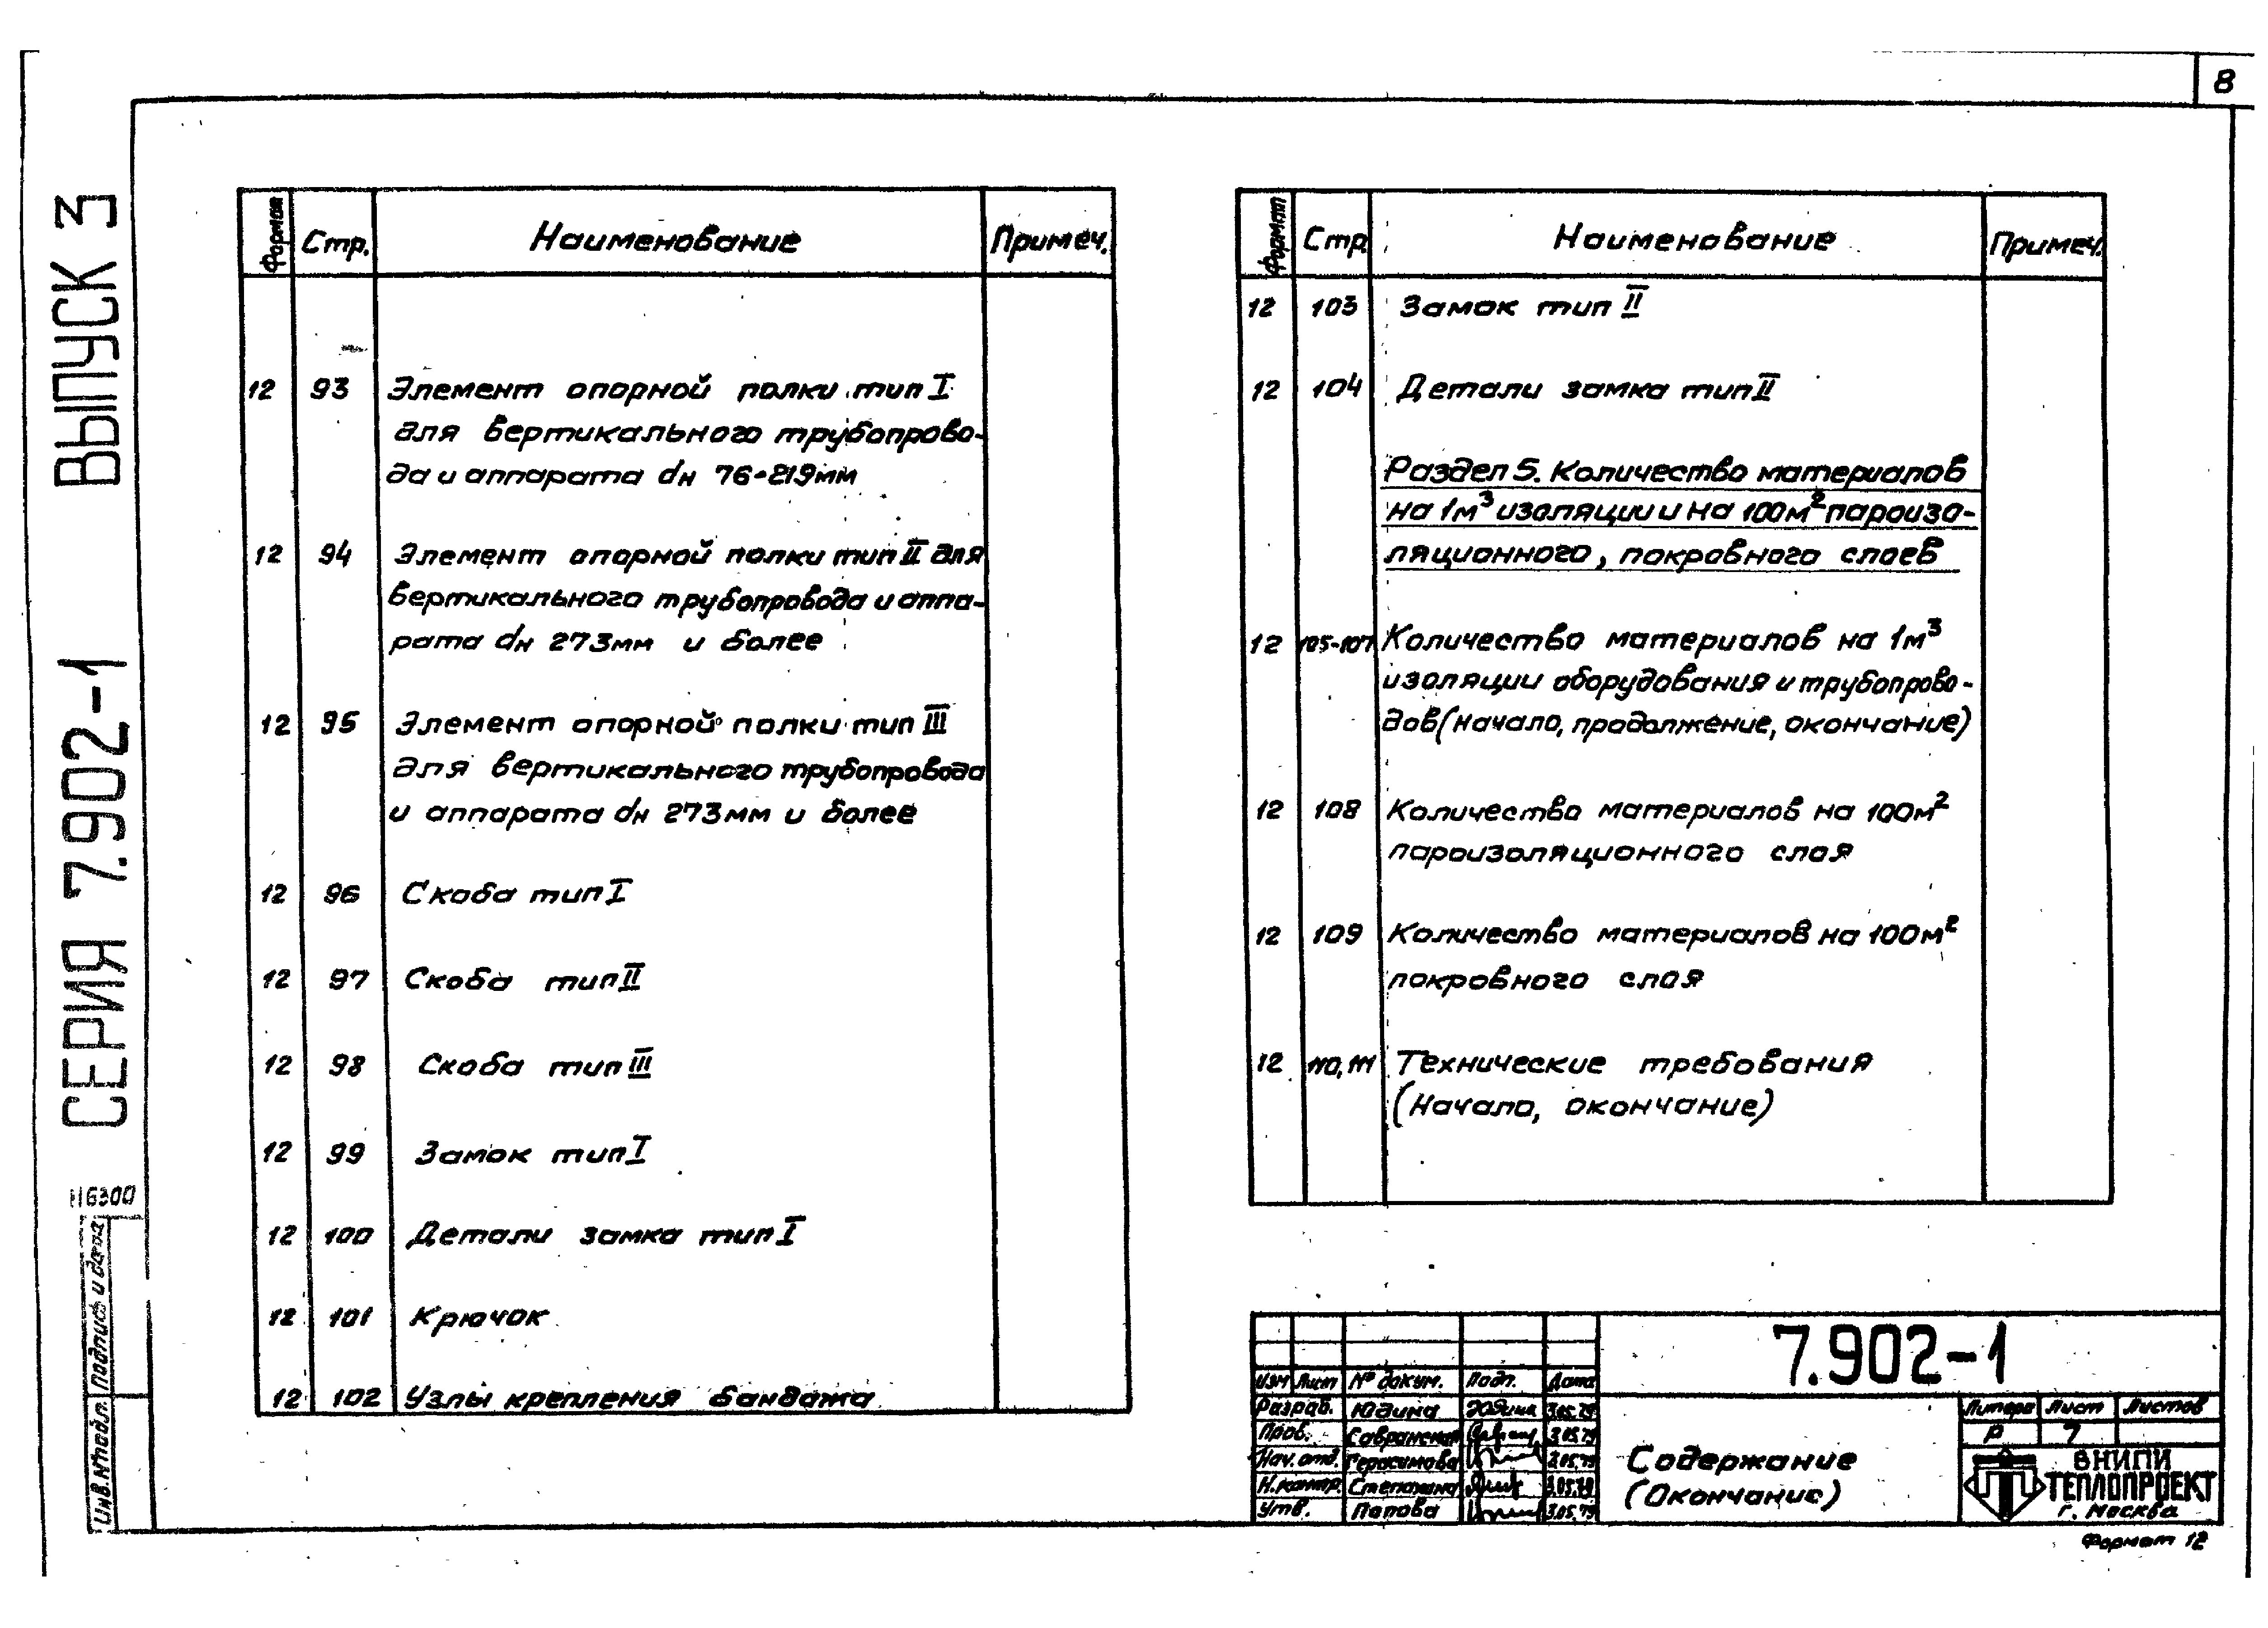 8
СЕРИЯ 7.902-1 ВЫПУСК 3
Формат Стр. Наименование Примеч.
12 93 Элемент опорной полки тип I
для вертикального трубопрово-
да и аппарата dн 76-219мм
12 94 Элемент опорной полки тип II для
вертикального трубопровода и аппа-
рата dн 273мм и более
12 95 Элемент опорной полки тип III
для вертикального трубопровода
и аппарата dн 273мм и более
12 96 Скоба тип I
12 97 Скоба тип II
12 98 Скоба тип III
12 99 Замок тип I
12 100 Детали замка тип I
12 101 Крючок
12 102 Узлы крепления бандажа
Формат Стр. Наименование Примеч.
12 103 Замок тип II
12 104 Детали замка тип II
Раздел 5. Количество материалов
на 1м³ изоляции и на 100м² пароизо-
ляционного, покровного слоев
12 105-107 Количество материалов на 1м³
изоляции оборудования и трубопрово-
дов (начало, продолжение, окончание)
12 108 Количество материалов на 100м²
пароизоляционного слоя
12 109 Количество материалов на 100м²
покровного слоя
12 110, 111 Технические требования
(Начало, окончание)
16300
Инв.№подл. Подпись и дата
7.902-1
Изм Лист № докум. Подп. Дата
Разраб. Юдина Юдина 3.05.79
Пров. Савранская 3.05.79
Нач. отд. Герасимова 3.05.79
Н.контр. Степанина 3.05.79
Утв. Попова 3.05.79
Содержание
(Окончание)
Литера Лист Листов
Р 7
ВНИПИ
ТЕПЛОПРОЕКТ
г. Москва
Формат 12